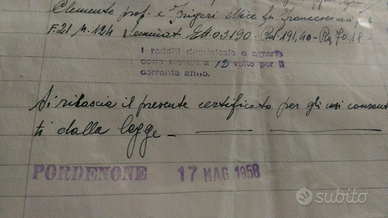 Clemente prof. e Brigeri Alice fu Francesco
F. 21 m. 124 Seminat. Ett 0.31.90 - Rd 191,40 - Ra 70.18 -
I redditi dominicale e agrario
sono elevati a 12 volte per il
corrente anno.
Si rilascia il presente certificato per gli usi consenti
ti dalla legge -
PORDENONE 17 MAG 1958
subito